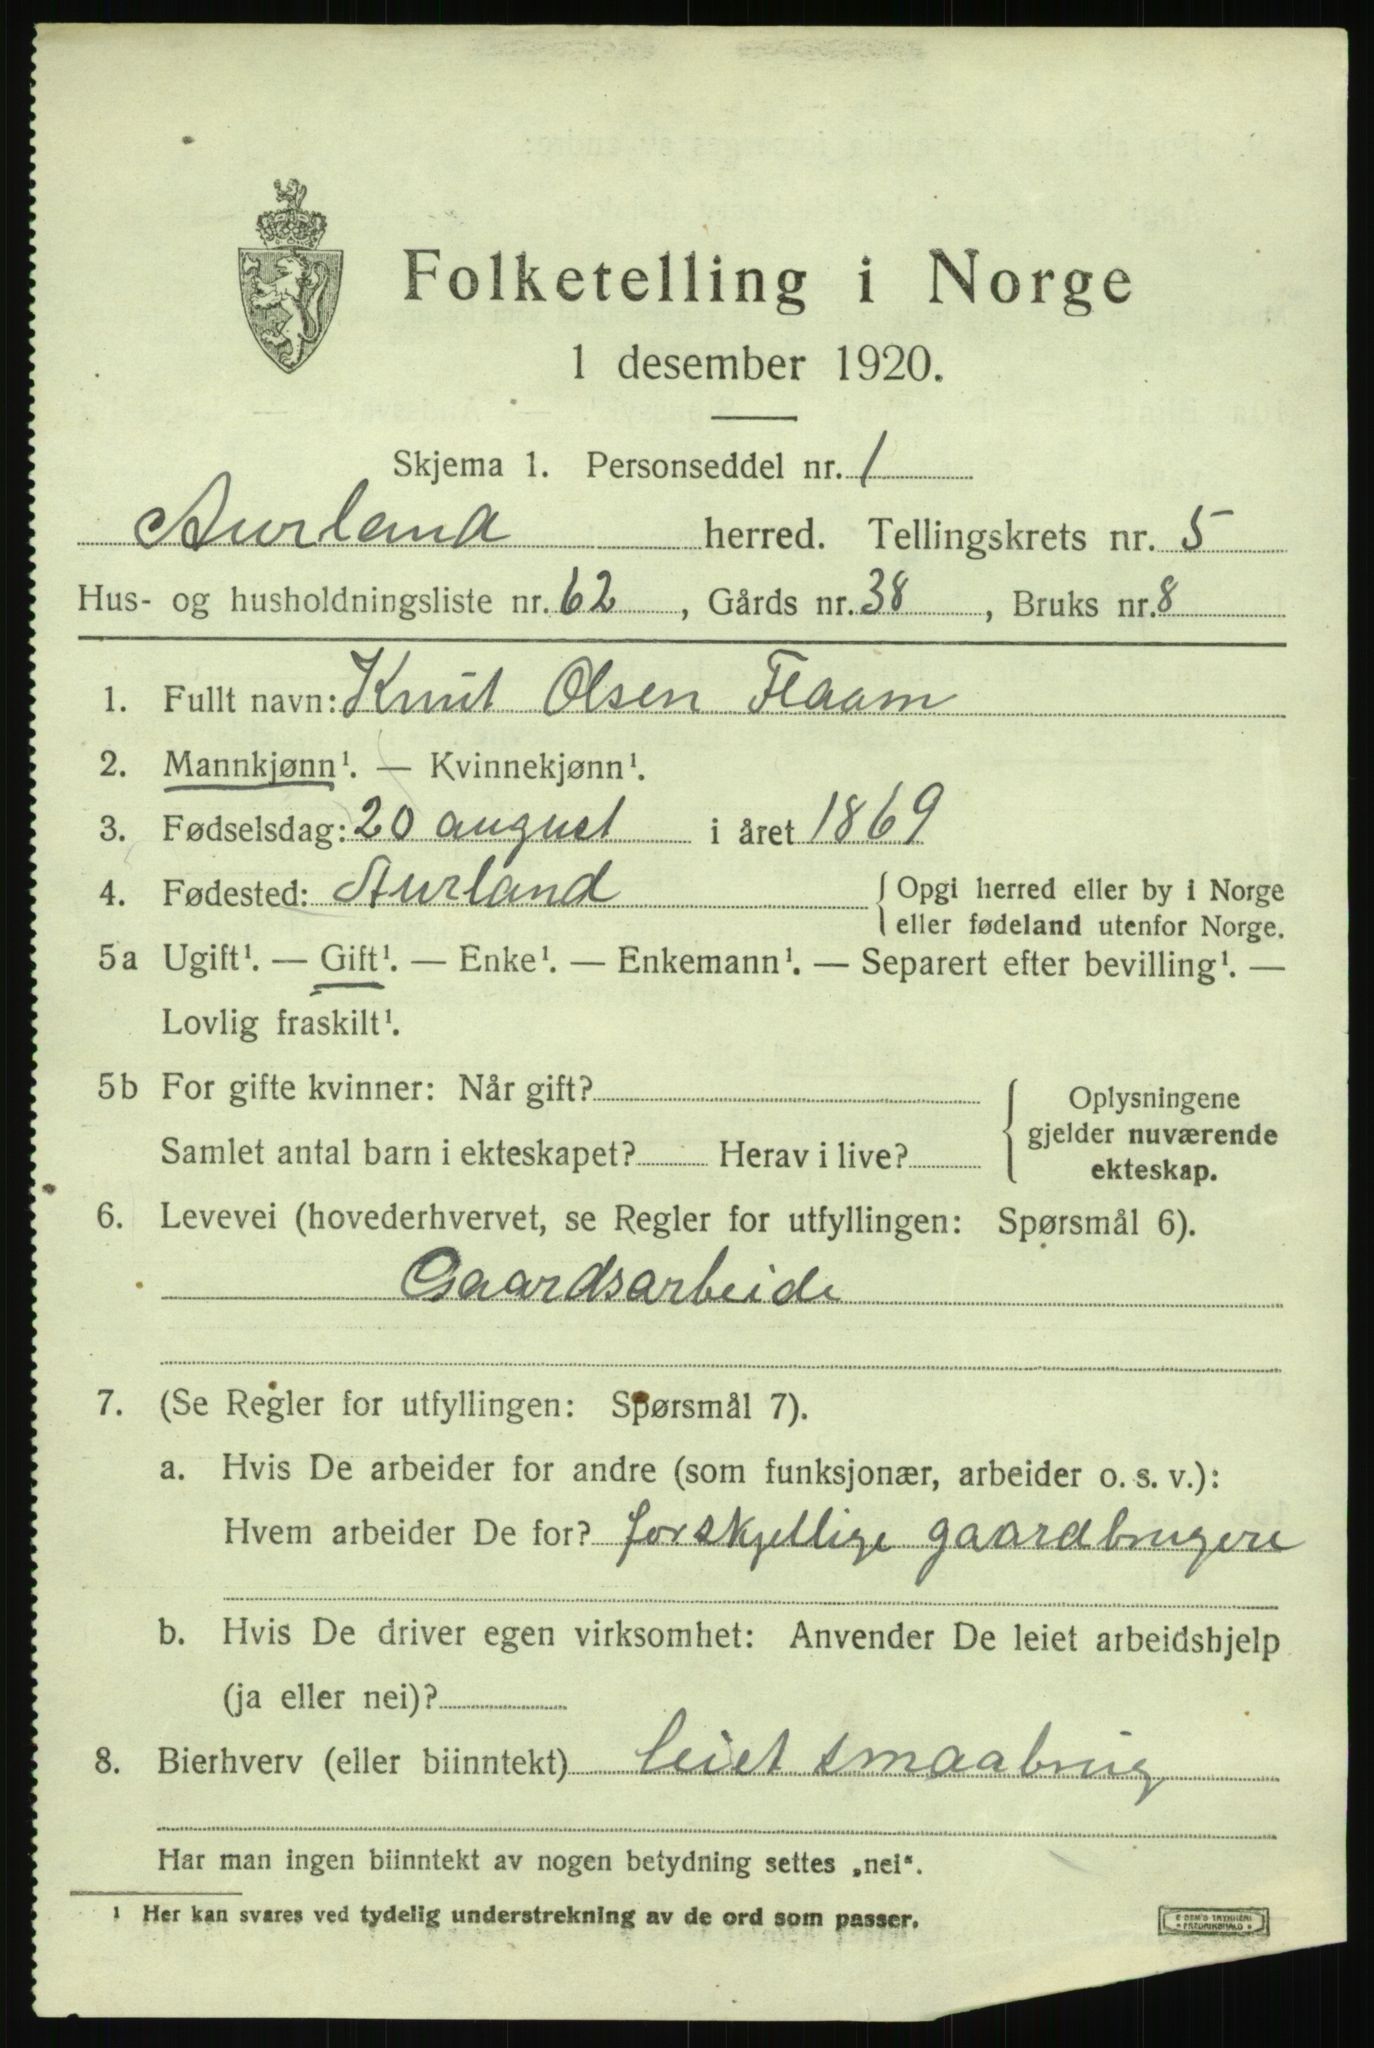 Folketelling i Norge
1 desember 1920.
Skjema 1. Personseddel nr. 1
Aurland herred. Tellingskrets nr. 5
Hus- og husholdningsliste nr. 62, Gårds nr. 38, Bruks nr. 8
1. Fullt navn: Knut Olsen Flaam
2. Mannkjønn¹. — Kvinnekjønn¹.
3. Fødselsdag: 20 august i året 1869
4. Fødested: Aurland { Opgi herred eller by i Norge
eller fødeland utenfor Norge.
5a Ugift¹. — Gift¹. — Enke¹. — Enkemann¹. — Separert efter bevilling¹. —
Lovlig fraskilt¹.
5b For gifte kvinner: Når gift?
Samlet antal barn i ekteskapet? Herav i live?
Oplysningene
gjelder nuværende
ekteskap.
6. Levevei (hovederhvervet, se Regler for utfyllingen: Spørsmål 6).
Gaardsarbeide
7. (Se Regler for utfyllingen: Spørsmål 7).
a. Hvis De arbeider for andre (som funksjonær, arbeider o. s. v.):
Hvem arbeider De for? forskjellige gaardbrugere
b. Hvis De driver egen virksomhet: Anvender De leiet arbeidshjelp
(ja eller nei)?
8. Bierhverv (eller biinntekt) leiet smaabrug
Har man ingen biinntekt av nogen betydning settes „nei“.
¹ Her kan svares ved tydelig understrekning av de ord som passer.